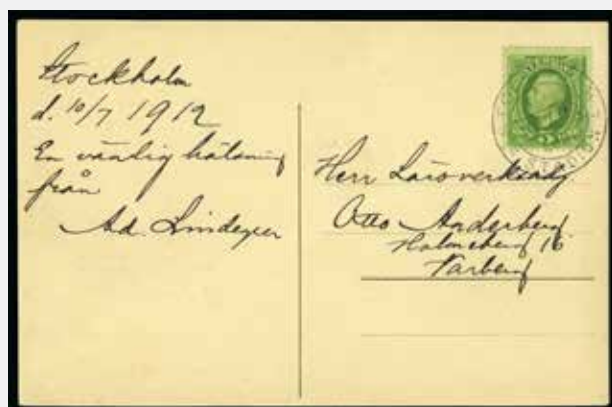 Stockholm
d. 10/7 1912
En vänlig hälsning
från
Ad. Lindegren
Herr Läroverksadj
Otto Anderberg
16
Varberg